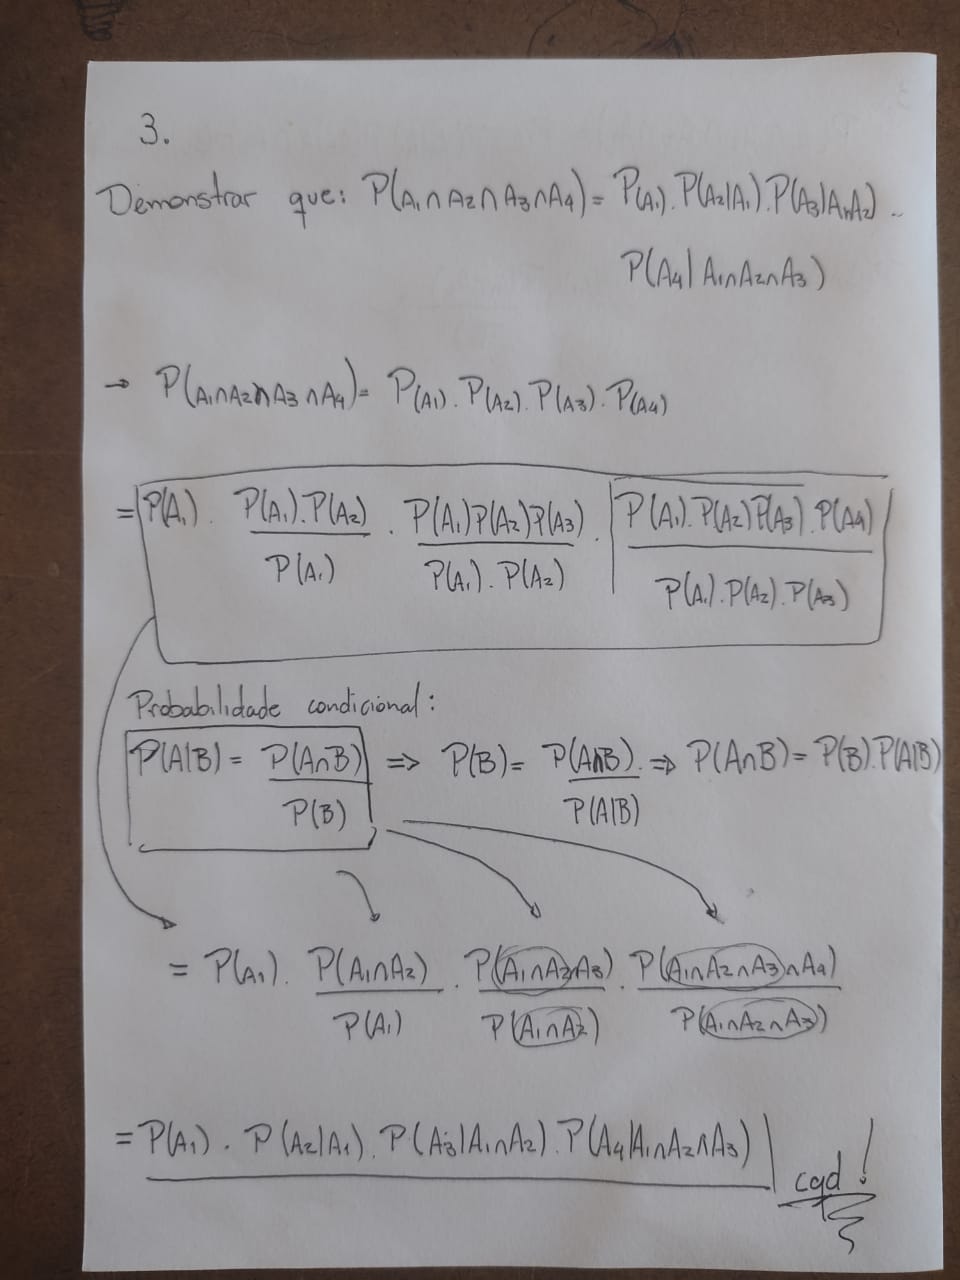 3.
Demonstrar que: P(A₁∩A₂∩A₃∩A₄) = P(A₁).P(A₂|A₁).P(A₃|A₁∩A₂)..
P(A₄|A₁∩A₂∩A₃)
→ P(A₁∩A₂∩A₃∩A₄) = P(A₁).P(A₂).P(A₃).P(A₄)
= P(A₁) . P(A₁).P(A₂) / P(A₁) . P(A₁)P(A₂)P(A₃) / P(A₁).P(A₂) . P(A₁).P(A₂)P(A₃).P(A₄) / P(A₁).P(A₂).P(A₃)
Probabilidade condicional:
P(A|B) = P(A∩B) / P(B) => P(B) = P(A∩B) / P(A|B) => P(A∩B) = P(B).P(A|B)
= P(A₁) . P(A₁∩A₂) / P(A₁) . P(A₁∩A₂∩A₃) / P(A₁∩A₂) . P(A₁∩A₂∩A₃∩A₄) / P(A₁∩A₂∩A₃)
= P(A₁) . P(A₂|A₁) . P(A₃|A₁∩A₂) . P(A₄|A₁∩A₂∩A₃) cqd!